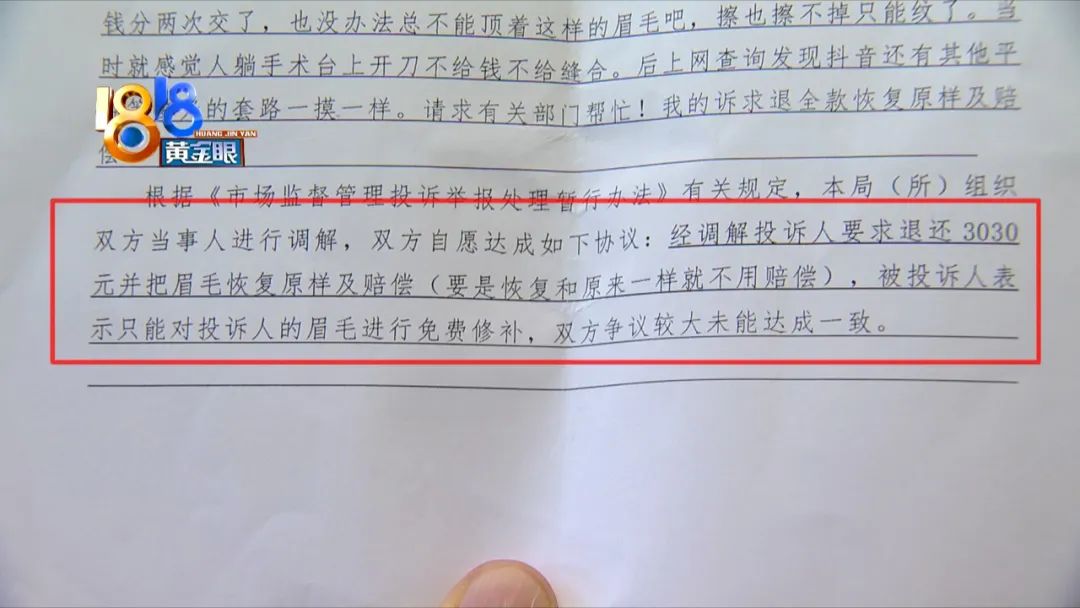 钱分两次交了，也没办法总不能顶着这样的眉毛吧，擦也擦不掉只能纹了。当
时就感觉人躺手术台上开刀不给钱不给缝合。后上网查询发现抖音还有其他平
的套路一摸一样。请求有关部门帮忙！我的诉求退全款恢复原样及赔
偿
1818
HUANG JIN YAN
黄金眼
根据《市场监督管理投诉举报处理暂行办法》有关规定，本局（所）组织
双方当事人进行调解，双方自愿达成如下协议：经调解投诉人要求退还3030
元并把眉毛恢复原样及赔偿（要是恢复和原来一样就不用赔偿），被投诉人表
示只能对投诉人的眉毛进行免费修补，双方争议较大未能达成一致。